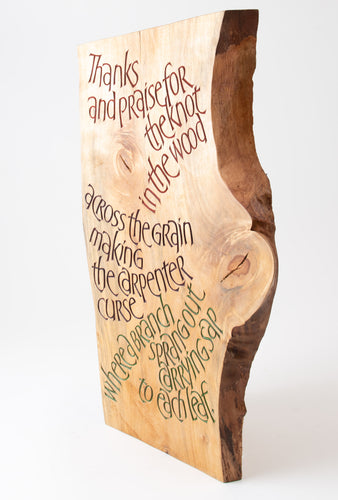 Thanks
and praise for
the knot
in the wood
across the grain
making
the carpenter
curse
where a branch
sprang out
carrying sap
to each leaf.